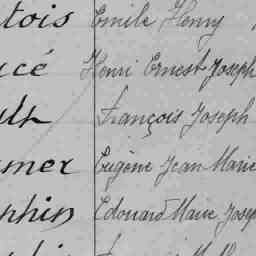 tois Emile Henry
cé Henri Ernest Joseph
ult François Joseph
mer Eugène Jean Marie
phin Edouard Marie Josep